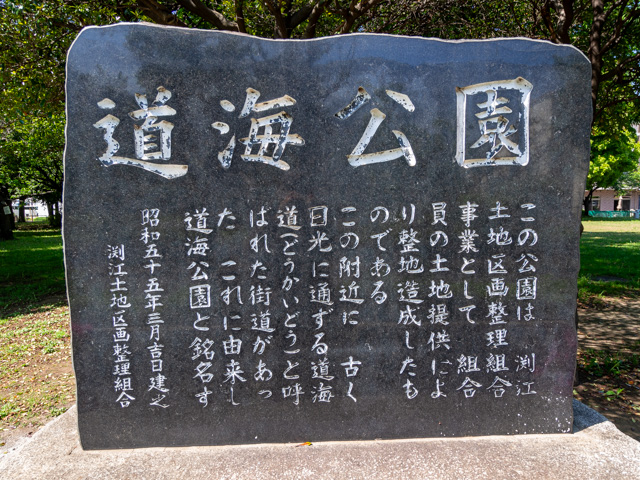 道海公園
この公園は　渕江
土地区画整理組合
事業として　組合
員の土地提供によ
り整地造成したも
のである
この附近に　古く
日光に通ずる道海
道（どうかいどう）と呼
ばれた街道があっ
た　これに由来し
道海公園と銘名す
昭和五十五年三月吉日建之
渕江土地区画整理組合